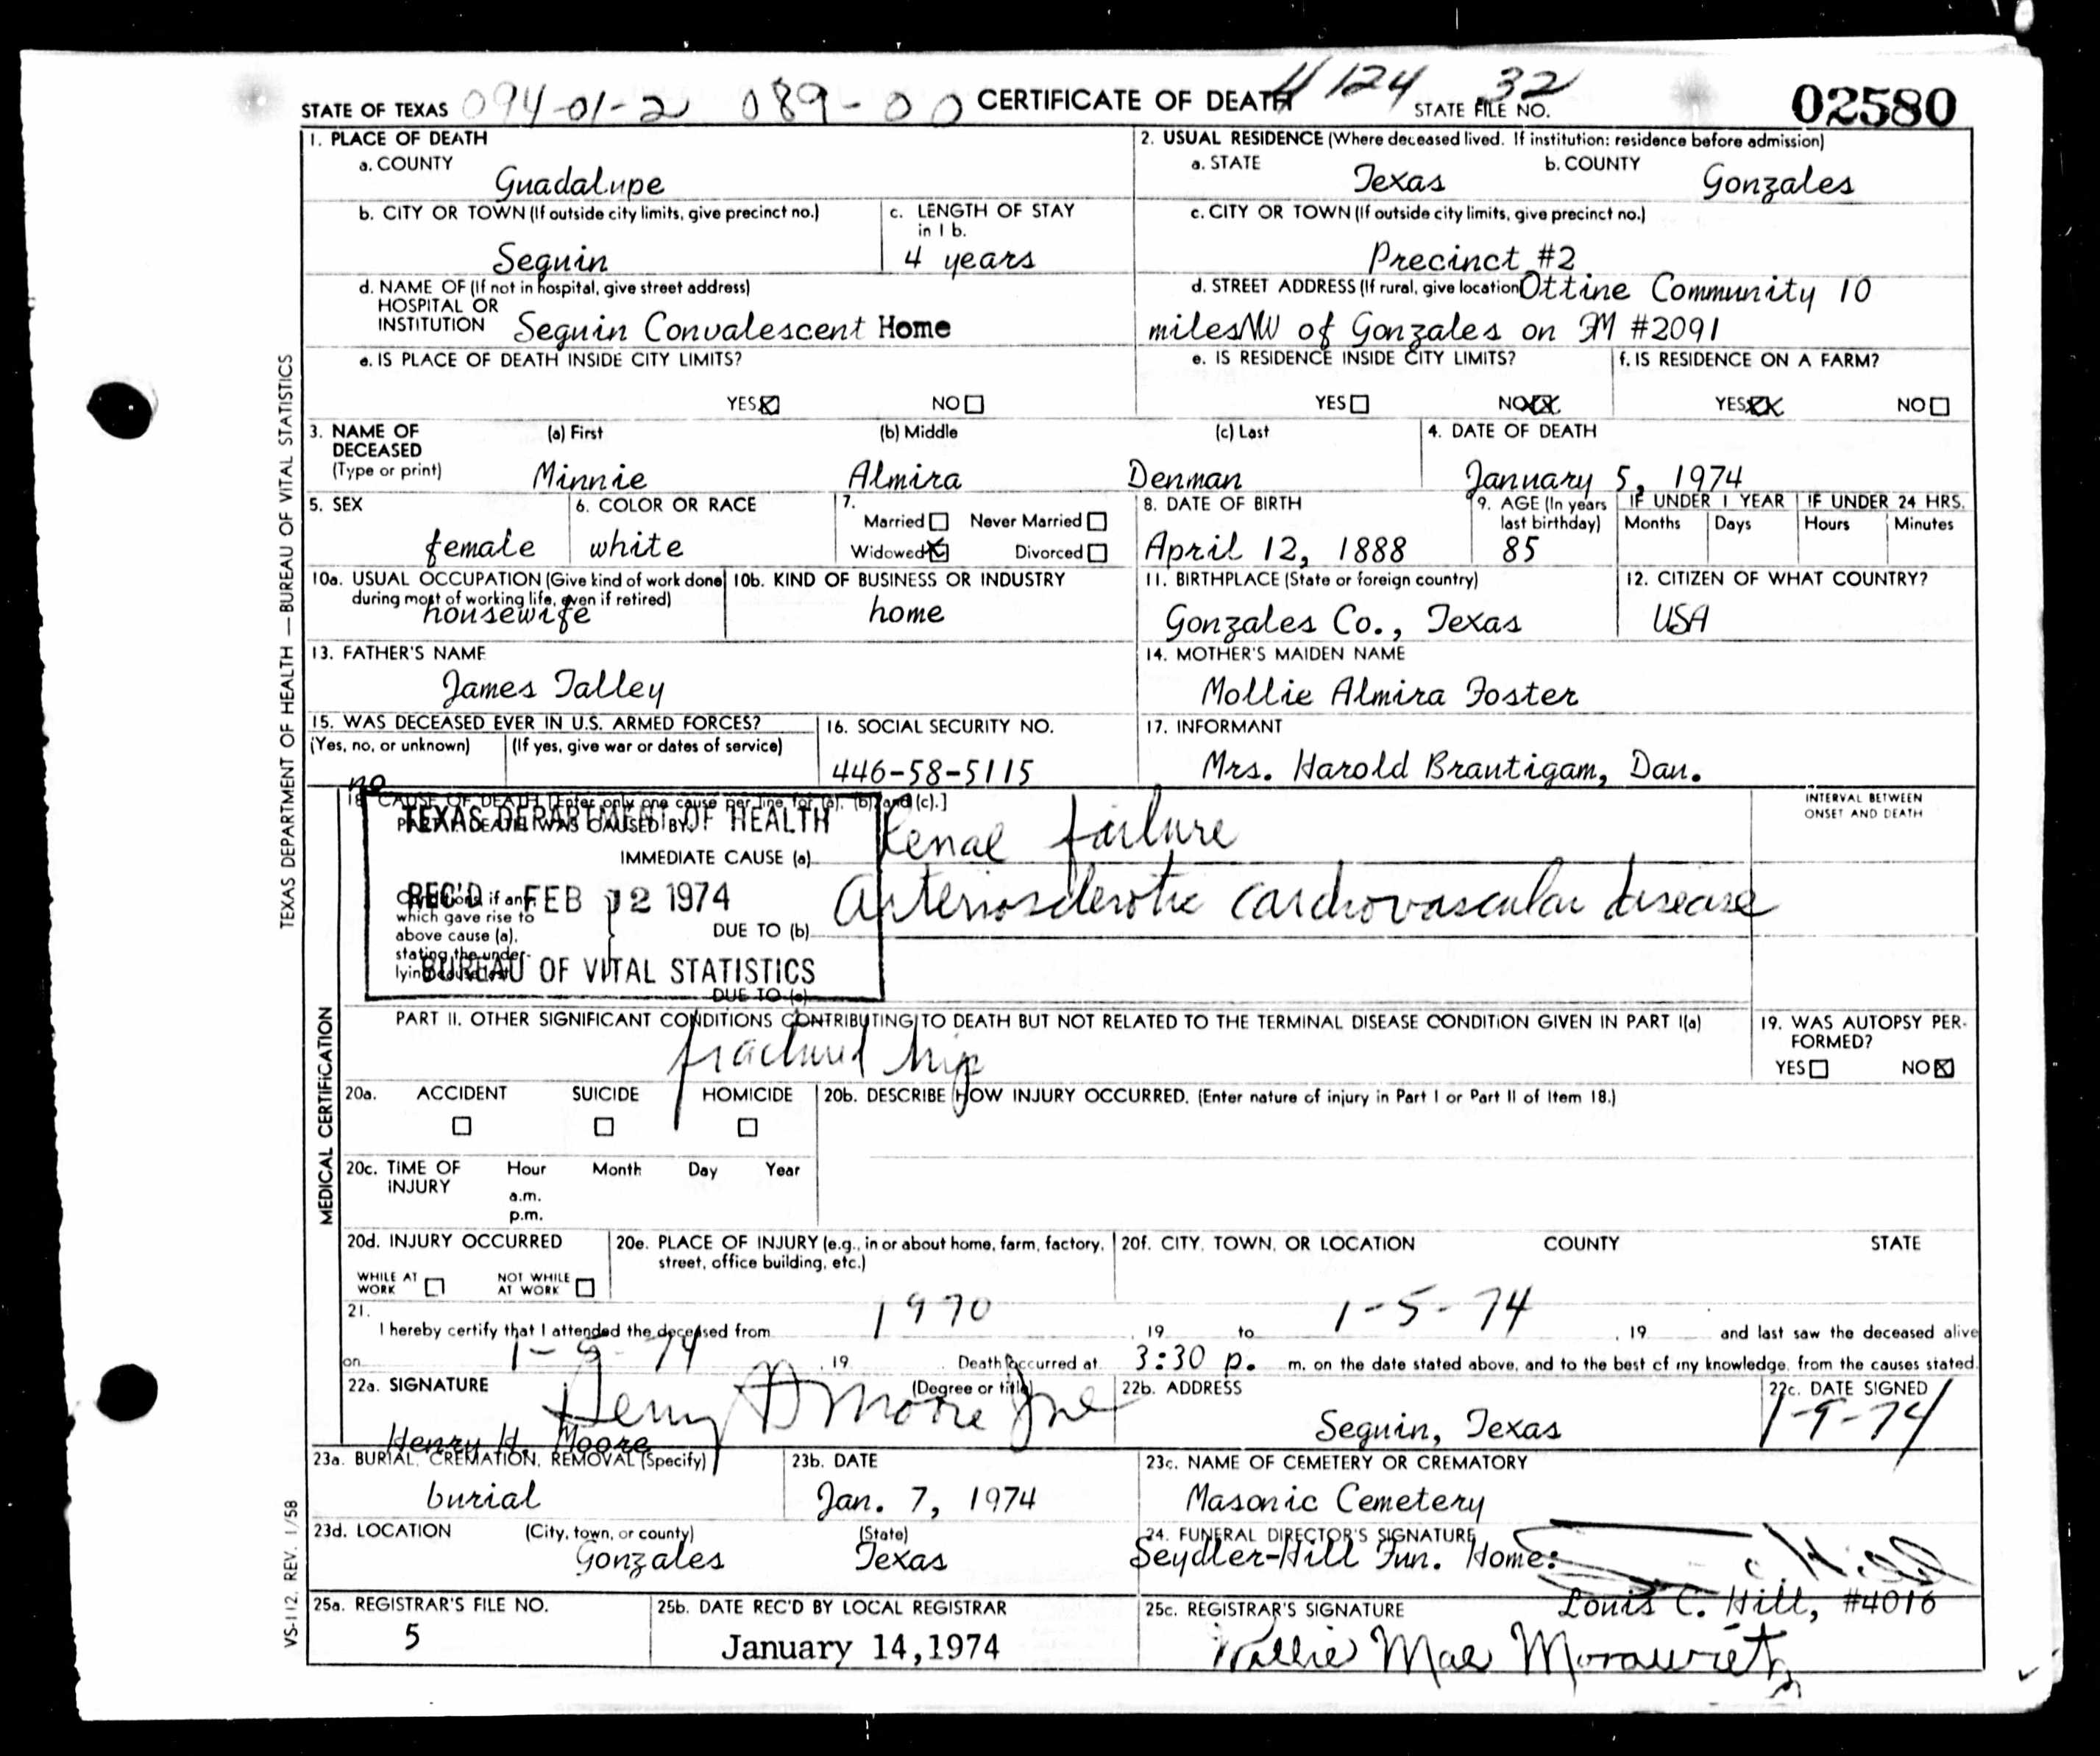 STATE OF TEXAS 094-01-2 089-00 CERTIFICATE OF DEATH 124 32 STATE FILE NO. 02580
1. PLACE OF DEATH
a. COUNTY
Guadalupe
2. USUAL RESIDENCE (Where deceased lived. If institution: residence before admission)
a. STATE Texas b. COUNTY Gonzales
b. CITY OR TOWN (If outside city limits, give precinct no.)
Seguin
c. LENGTH OF STAY
in 1 b.
4 years
c. CITY OR TOWN (If outside city limits, give precinct no.)
Precinct #2
d. NAME OF (If not in hospital, give street address)
HOSPITAL OR
INSTITUTION Seguin Convalescent Home
d. STREET ADDRESS (If rural, give location Ottine Community 10
miles NW of Gonzales on FM #2091
e. IS PLACE OF DEATH INSIDE CITY LIMITS?
YES NO
e. IS RESIDENCE INSIDE CITY LIMITS?
YES NO
f. IS RESIDENCE ON A FARM?
YES NO
3. NAME OF DECEASED (Type or print)
(a) First (b) Middle (c) Last
Minnie Almira Denman
4. DATE OF DEATH
January 5, 1974
5. SEX
female
6. COLOR OR RACE
white
7.
Married Never Married
Widowed Divorced
8. DATE OF BIRTH
April 12, 1888
9. AGE (In years
last birthday)
85
IF UNDER 1 YEAR
Months Days
IF UNDER 24 HRS.
Hours Minutes
10a. USUAL OCCUPATION (Give kind of work done
during most of working life, even if retired)
housewife
10b. KIND OF BUSINESS OR INDUSTRY
home
11. BIRTHPLACE (State or foreign country)
Gonzales Co., Texas
12. CITIZEN OF WHAT COUNTRY?
USA
13. FATHER'S NAME
James Talley
14. MOTHER'S MAIDEN NAME
Mollie Almira Foster
15. WAS DECEASED EVER IN U.S. ARMED FORCES?
(Yes, no, or unknown) (If yes, give war or dates of service)
no
16. SOCIAL SECURITY NO.
446-58-5115
17. INFORMANT
Mrs. Harold Brautigam, Dau.
18. CAUSE OF DEATH [Enter only one cause per line for (a), (b), and (c).]
PART I. DEATH WAS CAUSED BY:
IMMEDIATE CAUSE (a) Renal failure
INTERVAL BETWEEN
ONSET AND DEATH
TEXAS DEPARTMENT OF HEALTH
REC'D FEB 12 1974
BUREAU OF VITAL STATISTICS
Conditions, if any,
which gave rise to
above cause (a),
stating the under-
lying cause last.
DUE TO (b) Arteriosclerotic cardiovascular disease
DUE TO (c)
PART II. OTHER SIGNIFICANT CONDITIONS CONTRIBUTING TO DEATH BUT NOT RELATED TO THE TERMINAL DISEASE CONDITION GIVEN IN PART I(a)
fractured hip
19. WAS AUTOPSY PER-
FORMED?
YES NO
20a. ACCIDENT SUICIDE HOMICIDE
20b. DESCRIBE HOW INJURY OCCURRED. (Enter nature of injury in Part I or Part II of Item 18.)
20c. TIME OF INJURY
Hour Month Day Year
a.m.
p.m.
20d. INJURY OCCURRED
WHILE AT WORK NOT WHILE AT WORK
20e. PLACE OF INJURY (e.g., in or about home, farm, factory,
street, office building, etc.)
20f. CITY, TOWN, OR LOCATION COUNTY STATE
21.
I hereby certify that I attended the deceased from 1970, 19 to 1-5-74, 19 and last saw the deceased alive
on 1-5-74, 19 . Death occurred at 3:30 p. m. on the date stated above, and to the best of my knowledge, from the causes stated.
22a. SIGNATURE (Degree or title)
Henry H Moore
Henry H. Moore
22b. ADDRESS
Seguin, Texas
22c. DATE SIGNED
1-9-74
23a. BURIAL, CREMATION, REMOVAL (Specify)
burial
23b. DATE
Jan. 7, 1974
23c. NAME OF CEMETERY OR CREMATORY
Masonic Cemetery
23d. LOCATION (City, town, or county) (State)
Gonzales Texas
24. FUNERAL DIRECTOR'S SIGNATURE
Seydler-Hill Fun. Home:
Louis C. Hill, #4016
25a. REGISTRAR'S FILE NO.
5
25b. DATE REC'D BY LOCAL REGISTRAR
January 14, 1974
25c. REGISTRAR'S SIGNATURE
Mae
TEXAS DEPARTMENT OF HEALTH — BUREAU OF VITAL STATISTICS
MEDICAL CERTIFICATION
VS-112, REV. 1/58